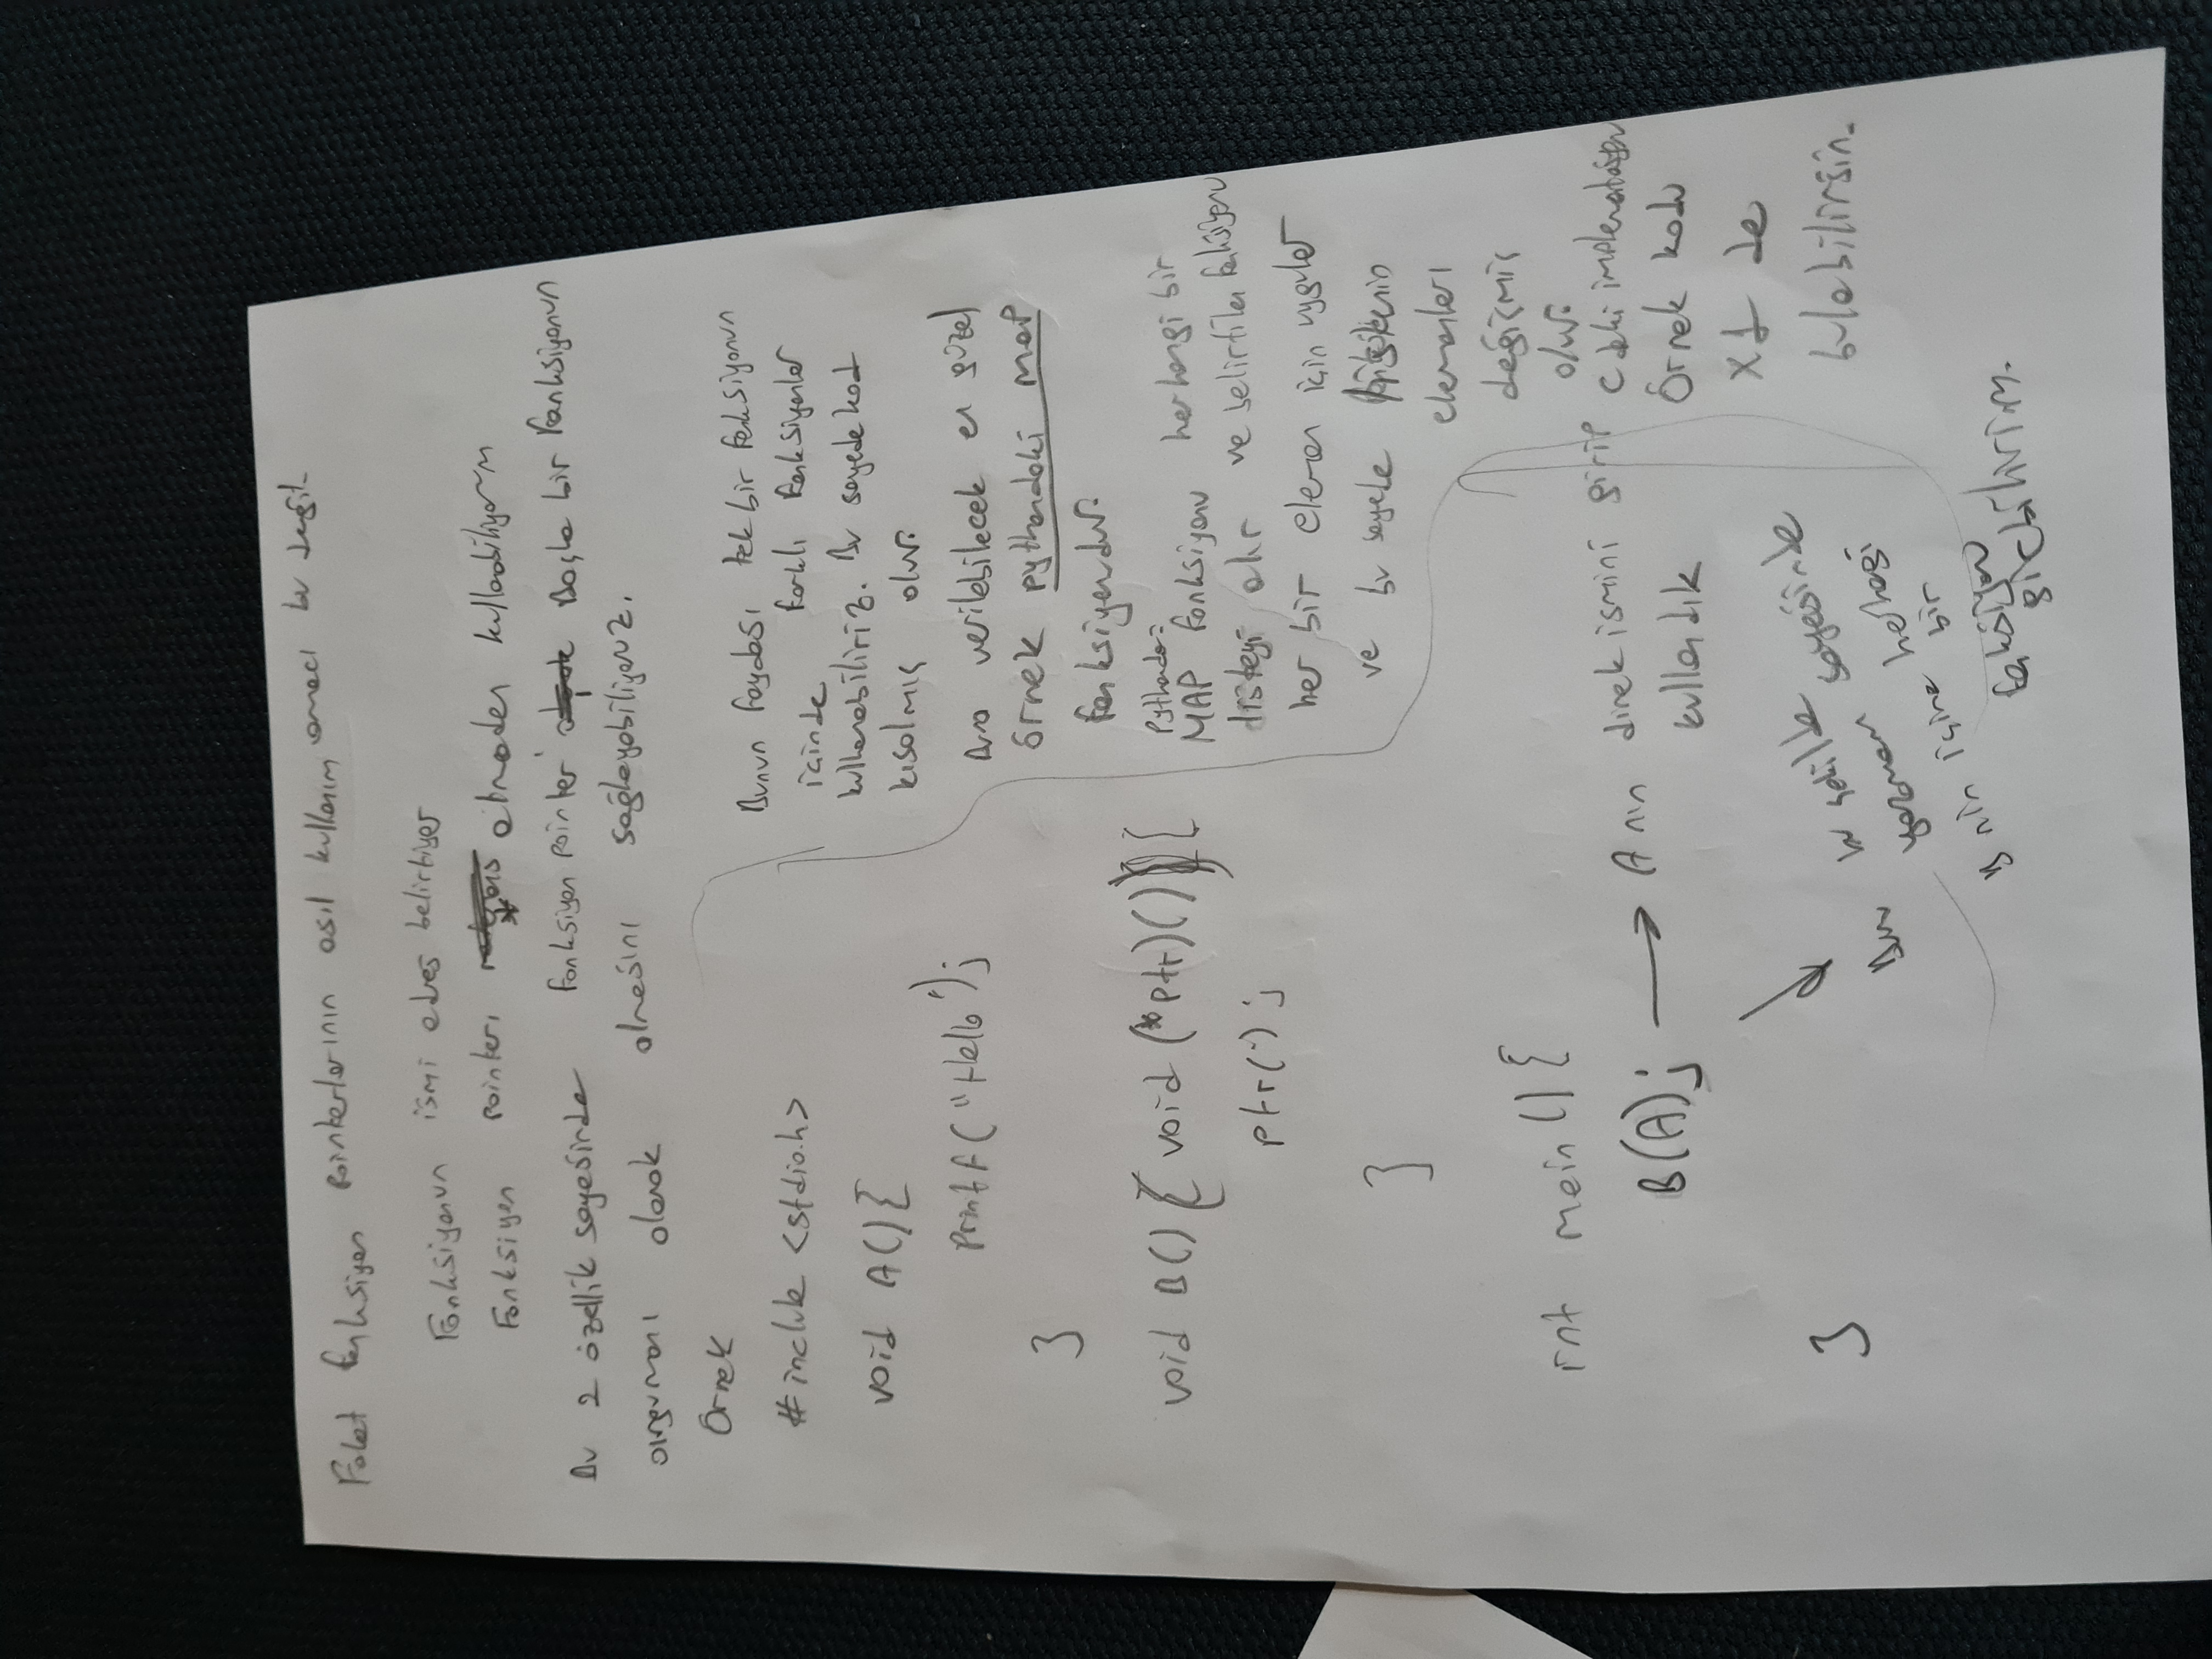 Fakat fonksiyon pointerlarının asıl kullanım amacı bu değil.
Fonksiyonun ismi adres belirtiyor
Fonksiyon pointerı * olmadan kullanabiliyorum
Bu 2 özellik sayesinde fonksiyon pointer'ı Başka bir fonksiyonun
argumanı olarak almasını sağlayabiliyoruz.
Örnek
#include <stdio.h>
void A(){
printf("Hello");
}
void B() ( void (*ptr)() ) {
ptr();
}
int main(){
B(A); → A nın direk ismini girip
kullandık
Bunu bu şekilde
yazmam sayesinde
B nin içine herhangi
bir
fonksiyonu
girebilirim.
Bunun faydası tek bir fonksiyonun
içinde farklı fonksiyonlar
kullanabiliriz. Bu sayede kod
kısalmış olur.
Buna verilebilecek en güzel
örnek pythondaki map
fonksiyondur.
Pythonda:
MAP fonksiyonu herhangi bir
listeyi alır ve belirtilen fonksiyonu
her bir eleman için uygular
ve bu sayede listenin
elemanları
değişmiş
olur.
C deki implementasyon
Örnek kodu
X1 de
bulabilirsin.
}